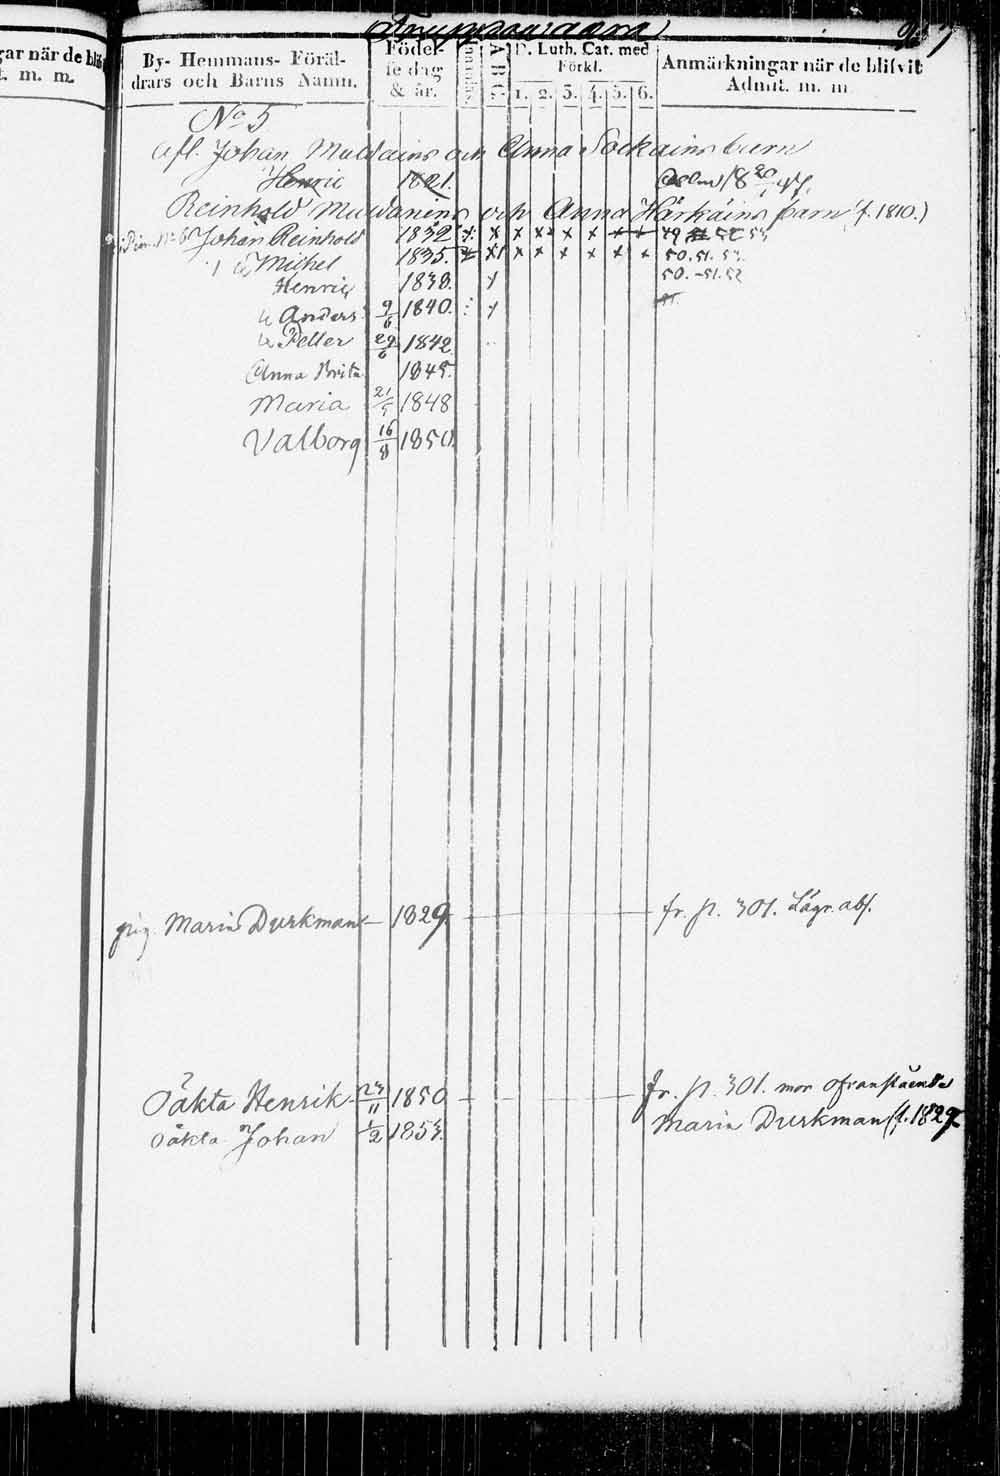 gar när de bli
t. m. m.
267
By- Hemmans- Föräl-
drars och Barns Namn.
Födel-
se dag
& år.
A B C
D. Luth. Cat. med
Förkl.
1. 2. 3. 4. 5. 6.
Anmärkningar när de blifvit
Admit. m. m
No 5
Afl. Johan Muldains och Anna Sockains barn
Henric 1821.
Reinhold Muldanens och Anna Härkäins barn (f. 1810.)
Johan Reinhold 1832 x x x x x x x x 49 52 53
Michel 1835. x x x x x x x x 50. 51. 53.
Henric 1838. x 50. -51. 52
Anders 9/6 1840. x
Petter 29/6 1842
Anna Brita 1845.
Maria 21/5 1848
Valborg 16/8 1850.
pig. Maria Durkman 1829 fr. p. 301. Lägr. abs.
Oäkta Henrik 23/11 1850 fr. p. 301. mor ofvanstående
Oäkta Johan 1/2 1853. Maria Durkman (f. 1829